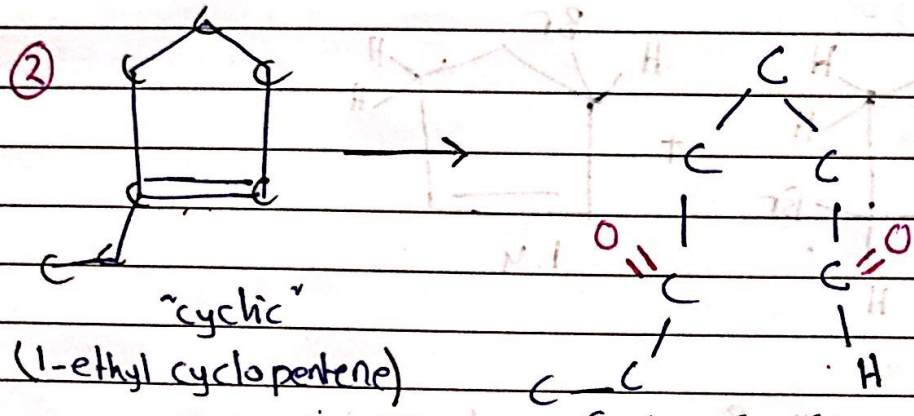 ②
C
C C
C C
C C
C
C C
O O
C C
C C H
"cyclic"
(1-ethyl cyclopentene)